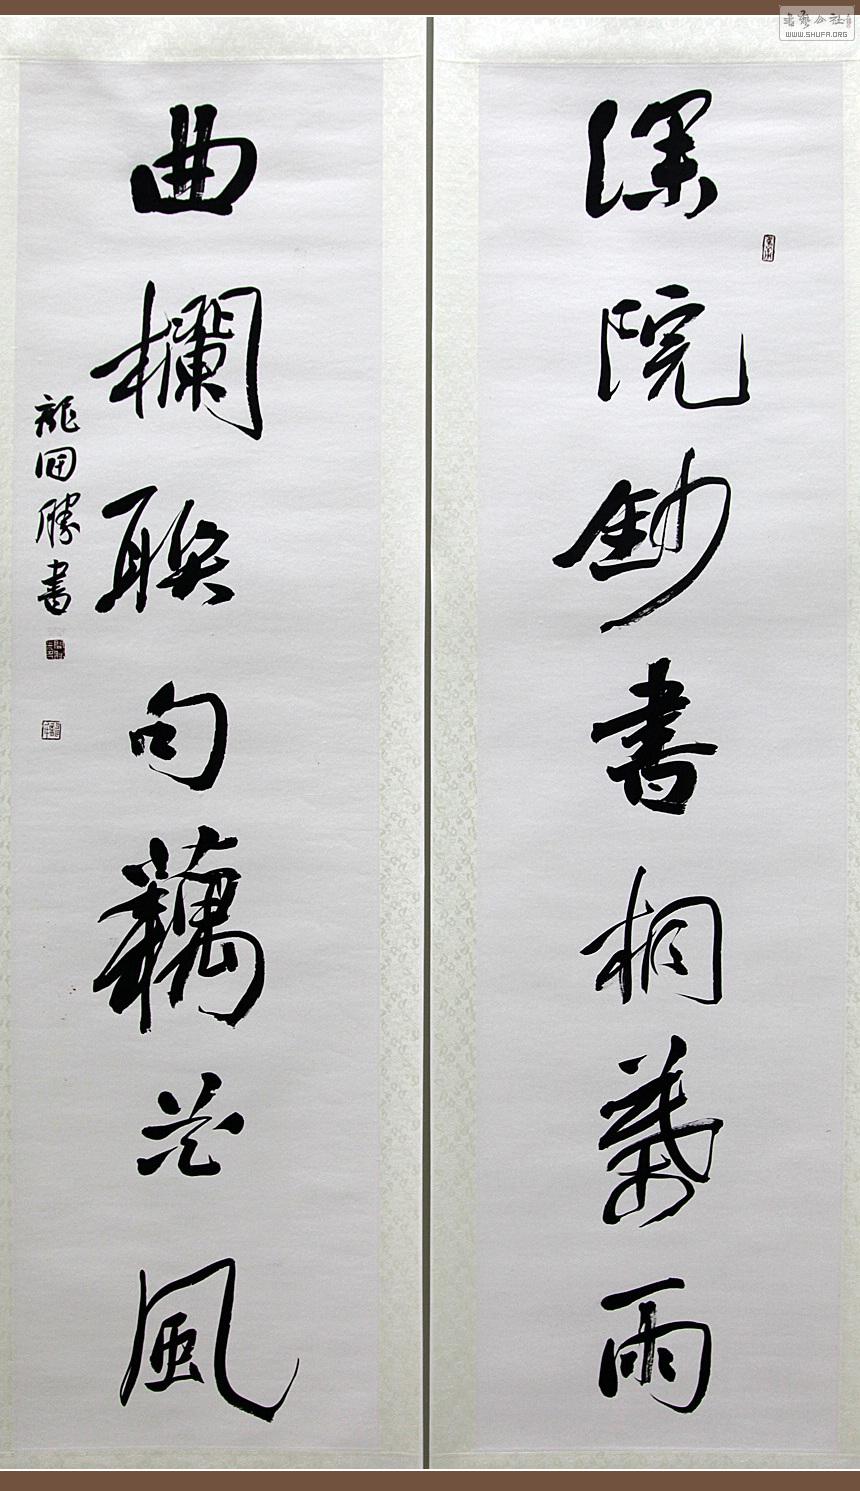 深院鈔書桐葉雨
曲欄聯句藕花風
龍開勝書
书艺公社
WWW.SHUFA.ORG